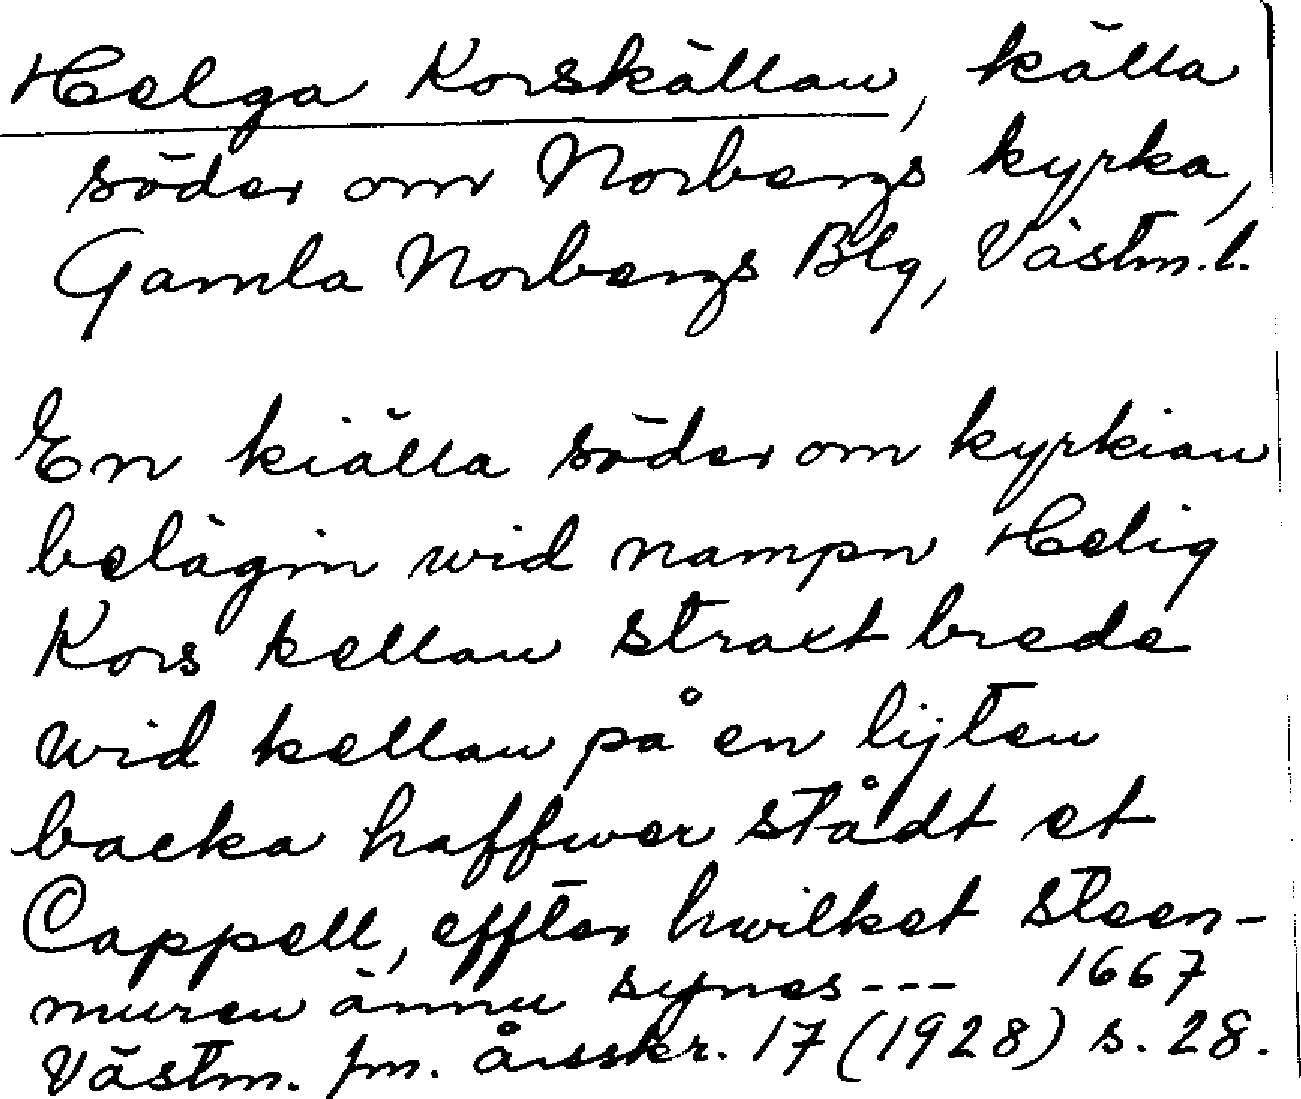 Helga Korskällan, källa
söder om Norbergs kyrka,
Gamla Norbergs Blg, Västm.l.
En kiälla söder om kyrkian
belägin wid nampn Helig
Kors kellan straxt brede
wid kellan på en lijten
backa haffwer stådt et
Cappell, effter hwilket steen-
muren ännu synes --- 1667
Västm. fm. årsskr. 17 (1928) s. 28.